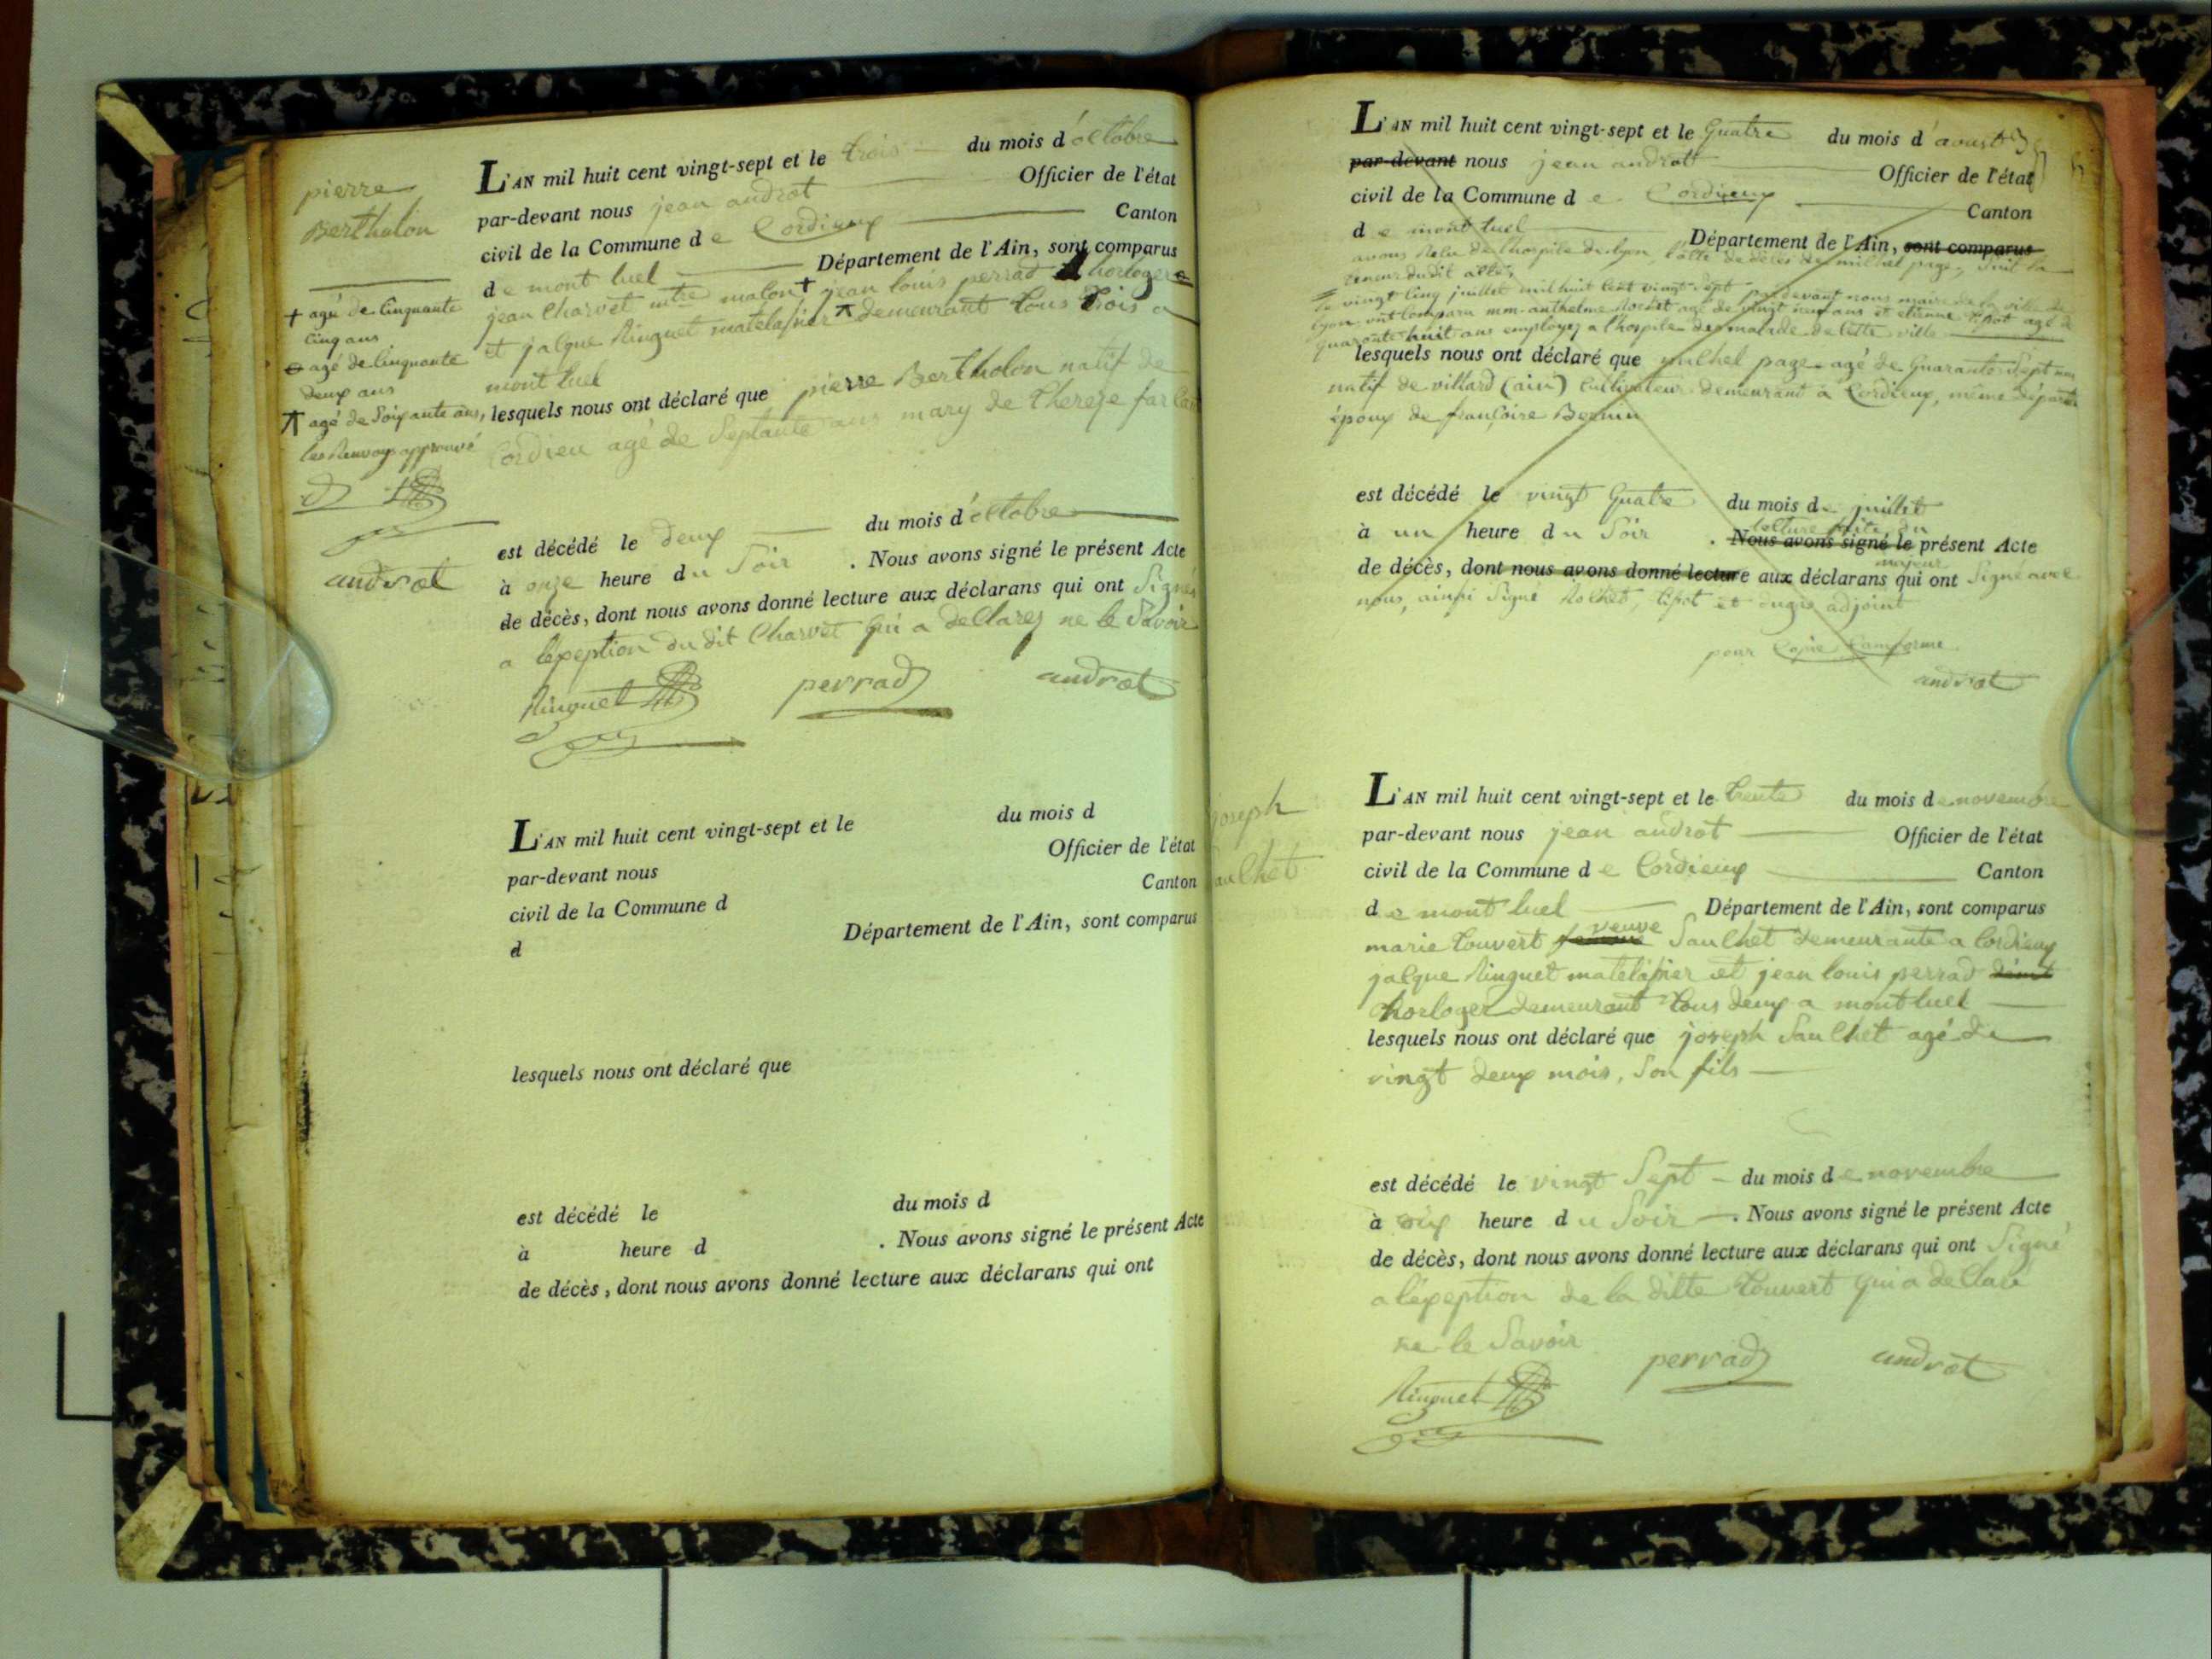 pierre
Bertholon
+ agé de Cinquante
Cinq ans
⊖ agé de Cinquante
deux ans
⊼ agé de Soixante ans,
les Renvoys approuvé
androt
L'AN mil huit cent vingt-sept et le trois du mois d'octobre
par-devant nous jean androt Officier de l'état
civil de la Commune de Cordieux Canton
de mont luel Département de l'Ain, sont comparus
jean Charvet mtre maçon + jean louis perrad horloger ⊖
et jacque Ringuet matelassier ⊼ demeurant tous trois a
mont luel
lesquels nous ont déclaré que pierre Bertholon natif de
Cordieu agé de Septante ans mary de thereze
est décédé le deux du mois d'octobre
à onze heure du Soir . Nous avons signé le présent Acte
de décès, dont nous avons donné lecture aux déclarans qui ont Signés
a lexeption du dit Charvet qui a declarez ne le Savoir
Ringuet perrad androt
L'AN mil huit cent vingt-sept et le du mois d
par-devant nous Officier de l'état
civil de la Commune d Canton
d Département de l'Ain, sont comparus
lesquels nous ont déclaré que
est décédé le du mois d
à heure d . Nous avons signé le présent Acte
de décès, dont nous avons donné lecture aux déclarans qui ont
L'AN mil huit cent vingt-sept et le quatre du mois d'aoust
par-devant nous jean androt Officier de l'état
civil de la Commune de Cordieux Canton
de mont luel Département de l'Ain, sont comparus
avons Relu de lhospice de lyon l'acte de décès de michel page, Suit la
teneur dudit acte,
Le vingt Cinq juillet mil huit Cent vingt Sept par devant nous maire de la ville de
lyon ont Comparu mm. anthelme Rochet agé de vingt neuf ans et etienne agé de
quarante huit ans employez a lhospice des malade de cette ville
lesquels nous ont déclaré que michel page agé de Quarante Sept ans
natif de villard (ain) Cultivateur demeurant a Cordieux, même départe
époux de françoise Bernin
est décédé le vingt Quatre du mois de juillet
lecture faite du
à un heure du Soir . Nous avons signé le présent Acte
majeur
de décès, dont nous avons donné lecture aux déclarans qui ont Signé avec
nous, ainsi Signé Rochet, et adjoint
pour Copie Comforme
androt
joseph
Sauchet
L'AN mil huit cent vingt-sept et le trente du mois de novembre
par-devant nous jean androt Officier de l'état
civil de la Commune de Cordieux Canton
de mont luel Département de l'Ain, sont comparus
veuve
marie Couvert femme Sauchet demeurante a Cordieux
jacque Ringuet matelassier et jean louis perrad
horloger demeurant tous deux a mont luel
lesquels nous ont déclaré que joseph Sauchet agé de
vingt deux mois, Son fils
est décédé le vingt Sept du mois de novembre
à six heure du Soir . Nous avons signé le présent Acte
de décès, dont nous avons donné lecture aux déclarans qui ont Signé
a lexeption de la ditte Couvert qui a declaré
ne le Savoir
Ringuet perrad androt